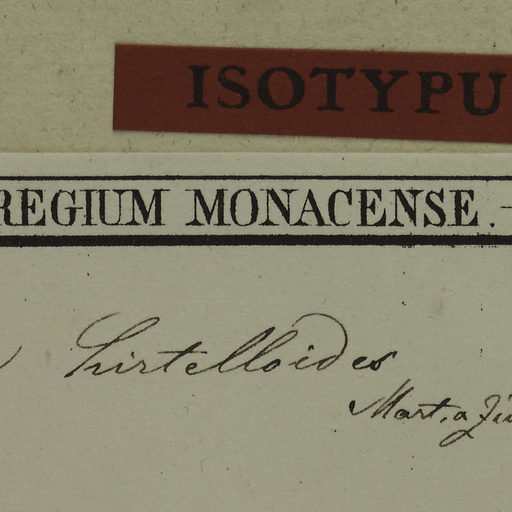 ISOTYPU
REGIUM MONACENSE.
hirtelloides
Mart. a